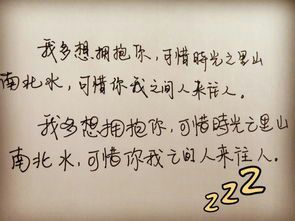 我多想拥抱你，可惜時光之里山
南北水，可惜你我之间人来往人。
我多想拥抱你，可惜時光之里山
南北水，可惜你我之间人来往人。
zzz